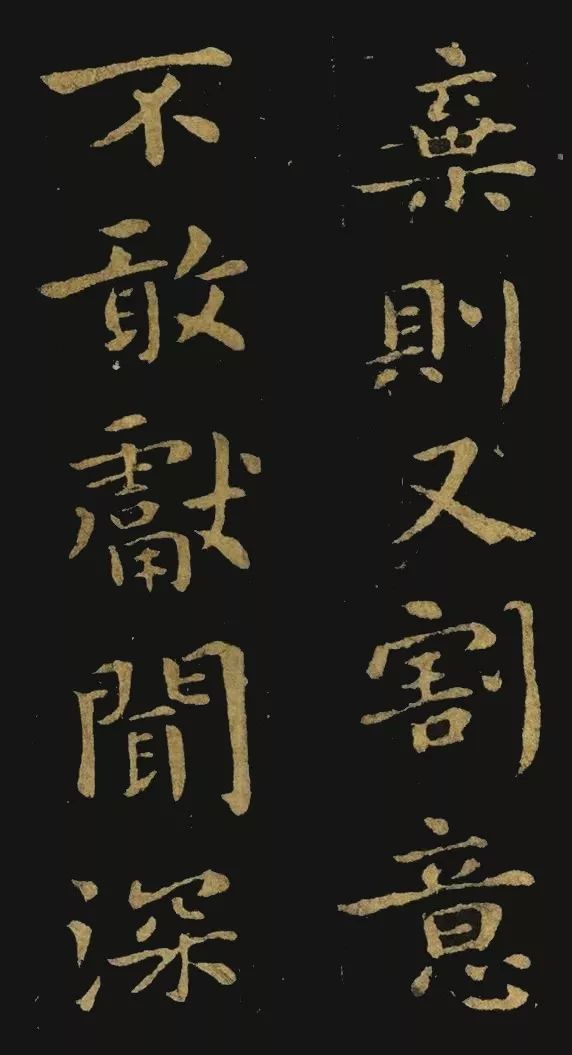 棄則又割意
不敢獻聞深